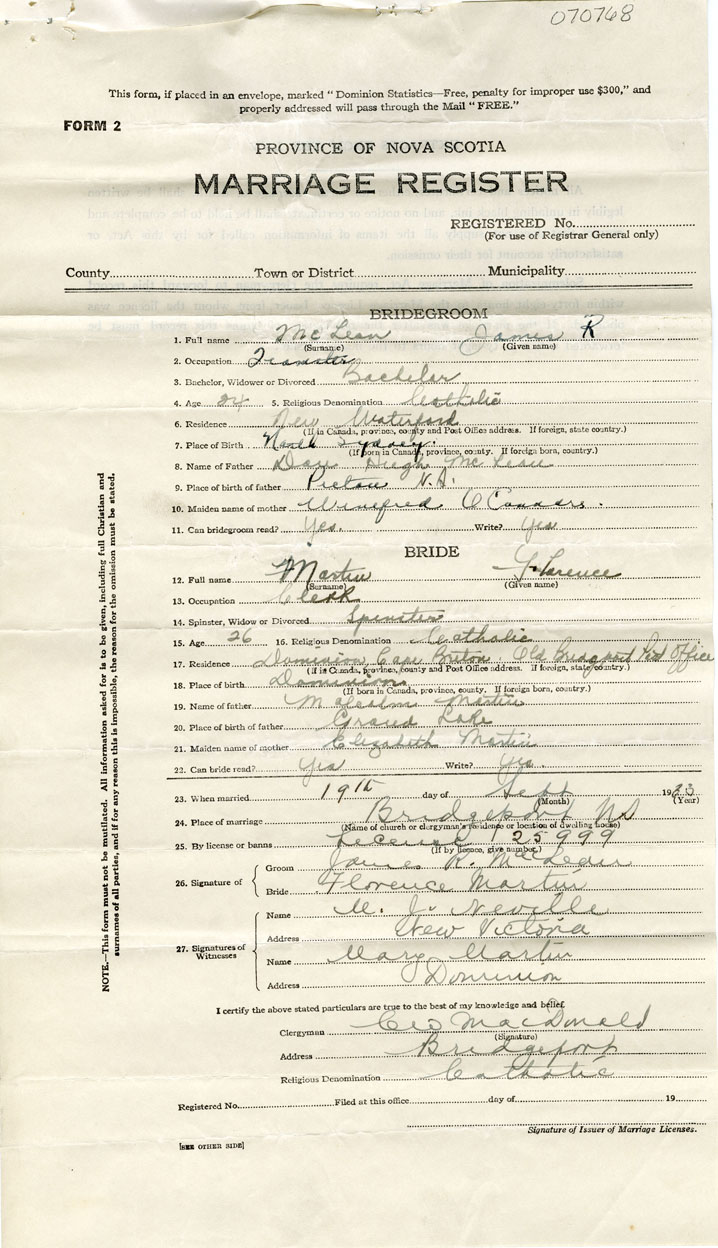 070768
This form, if placed in an envelope, marked "Dominion Statistics—Free, penalty for improper use $300," and
properly addressed will pass through the Mail "FREE."
FORM 2
PROVINCE OF NOVA SCOTIA
MARRIAGE REGISTER
REGISTERED No.
(For use of Registrar General only)
County Town or District Municipality
BRIDEGROOM
1. Full name McLean James R
(Surname) (Given name)
2. Occupation Teamster
3. Bachelor, Widower or Divorced Bachelor
4. Age 24 5. Religious Denomination Catholic
6. Residence New Waterford
(If in Canada, province, county and Post Office address. If foreign, state country.)
7. Place of Birth North Sydney.
(If born in Canada, province, county. If foreign born, country.)
8. Name of Father Dan Hugh McLean
9. Place of birth of father Pictou N.S.
10. Maiden name of mother Winifred O'Connors.
11. Can bridegroom read? Yes. Write? Yes
BRIDE
12. Full name Martin Florence
(Surname) (Given name)
13. Occupation Clerk
14. Spinster, Widow or Divorced Spinster
15. Age 26 16. Religious Denomination Catholic
17. Residence Dominion, Cape Breton, Old Bridgeport Post Office
(If is Canada, province, county and Post Office address. If foreign, state country.)
18. Place of birth Dominion
(If born in Canada, province, county. If foreign born, country.)
19. Name of father Malcolm Martin
20. Place of birth of father Grand Lake
21. Maiden name of mother Elizabeth Martin
22. Can bride read? Yes Write? Yes.
23. When married 19th day of Sept 1923
(Month) (Year)
24. Place of marriage Bridgeport NS
(Name of church or clergyman's residence or location of dwelling house)
25. By license or banns License 125999
(If by licence, give number.)
26. Signature of Groom James R. McLean
Bride Florence Martin
27. Signatures of Witnesses Name M. J. Neville
Address New Victoria
Name Mary Martin
Address Dominion
I certify the above stated particulars are true to the best of my knowledge and belief.
Clergyman Geo MacDonald
(Signature)
Address Bridgeport
Religious Denomination Catholic
Registered No. Filed at this office day of 19
Signature of Issuer of Marriage Licenses.
[SEE OTHER SIDE]
NOTE.—This form must not be mutilated. All information asked for is to be given, including full Christian and
surnames of all parties, and if for any reason this is impossible, the reason for the omission must be stated.